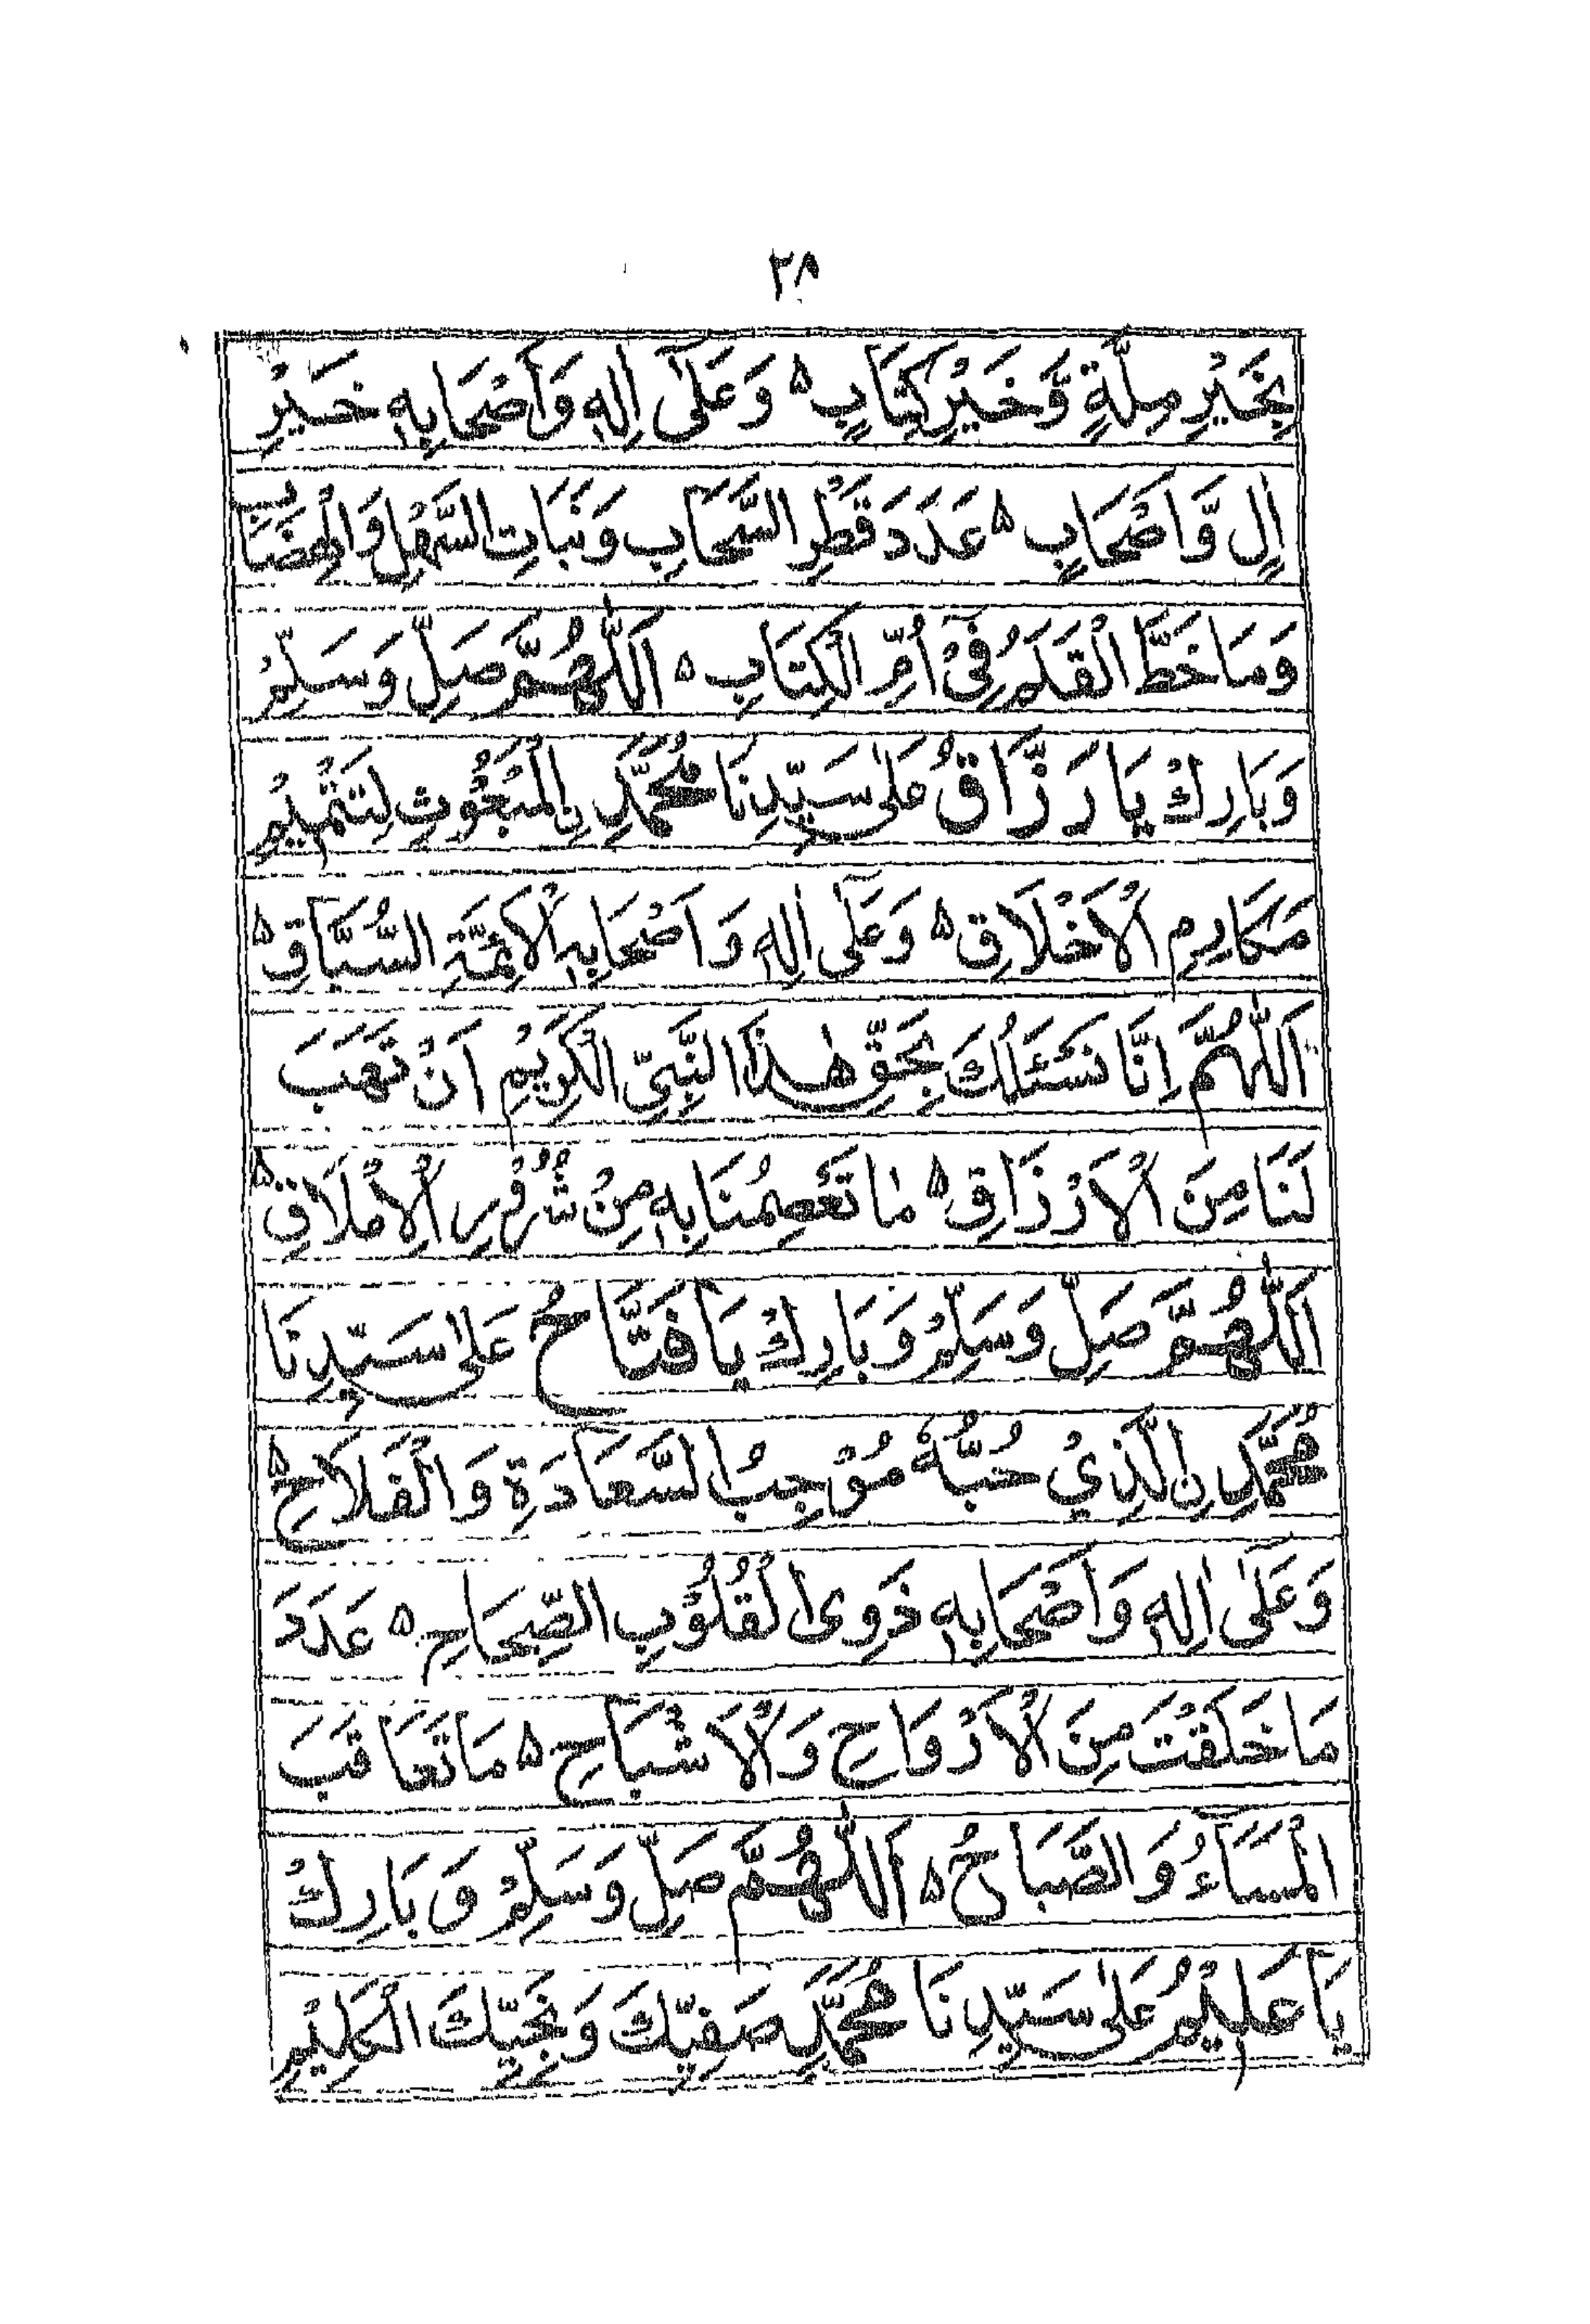 ٢٨
بِخَيْرِ مِلَّةٍ وَّخَيْرِ كِتَابٍ ۵ وَعَلٰٓى اٰلِهٖ وَاَصْحَابِهٖ خَيْرِ
اٰلٍ وَّاَصْحَابٍ ۵ عَدَدَ قَطْرِ السَّحَابِ وَنَبَاتِ السَّهْلِ وَالْهِضَابِ
وَمَا خَطَّ الْقَلَمُ فِيْٓ اُمِّ الْكِتَابِ ۵ اَللّٰهُمَّ صَلِّ وَسَلِّمْ
وَبَارِكْ يَا رَزَّاقُ عَلٰى سَيِّدِنَا مُحَمَّدِ نِالْمَبْعُوْثِ لِتَتْمِيْمِ
مَكَارِمِ الْاَخْلَاقِ ۵ وَعَلٰٓى اٰلِهٖ وَاَصْحَابِهِ الْاَئِمَّةِ السُّبَّاقِ ۵
اَللّٰهُمَّ اِنَّا نَسْئَلُكَ بِحَقِّ هٰذَا النَّبِيِّ الْكَرِيْمِ اَنْ تَهَبَ
لَنَا مِنَ الْاَرْزَاقِ ۵ مَا تَعْصِمُنَا بِهٖ مِنْ شُرُوْرِ الْاِمْلَاقِ ۵
اَللّٰهُمَّ صَلِّ وَسَلِّمْ وَبَارِكْ يَا فَتَّاحُ عَلٰى سَيِّدِنَا
مُحَمَّدِ نِالَّذِيْ حُبُّهٗ مُوْجِبُ السَّعَادَةِ وَالْفَلَاحِ ۵
وَعَلٰٓى اٰلِهٖ وَاَصْحَابِهٖ ذَوِى الْقُلُوْبِ الصِّحَاحِ ۵ عَدَدَ
مَا خَلَقْتَ مِنَ الْاَرْوَاحِ وَالْاَشْبَاحِ ۵ مَا تَعَاقَبَ
الْمَسَآءُ وَالصَّبَاحُ ۵ اَللّٰهُمَّ صَلِّ وَسَلِّمْ وَبَارِكْ
يَا عَلِيْمُ عَلٰى سَيِّدِنَا مُحَمَّدٍ صَفِيِّكَ وَنَجِيِّكَ الْحَلِيْمِ